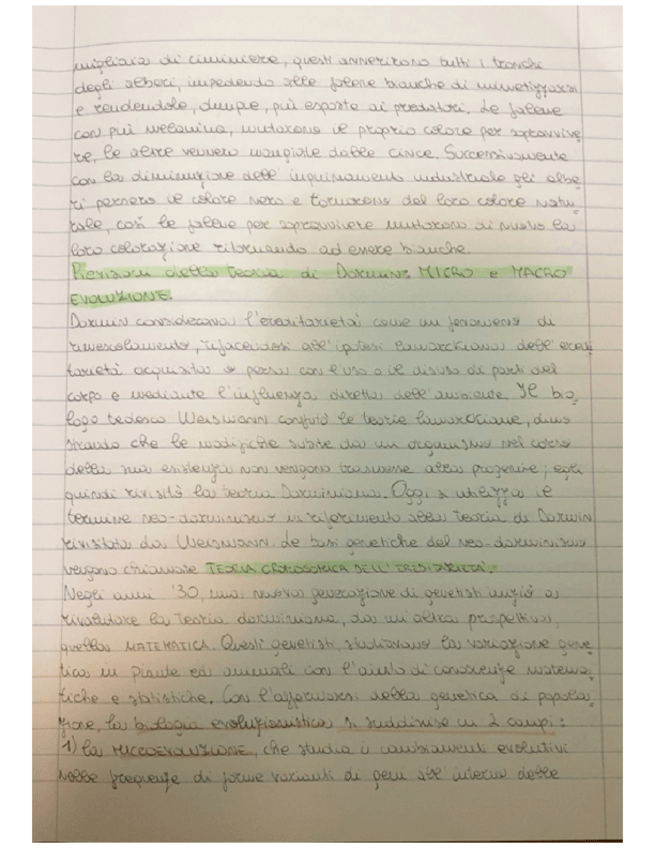 migliaia di ciminiere, questi annerirono tutti i tronchi
degli alberi, impedendo alle falene bianche di mimetizzarsi
e rendendole, dunque, più esposte ai predatori. Le falene
con più melanina, mutarono il proprio colore per sopravvive
re, le altre vennero mangiate dalle cince. Successivamente
con la diminuzione dell'inquinamento industriale gli albe
ri persero il colore nero e tornarono del loro colore natu
rale, così le falene per sopravvivere mutarono di nuovo la
loro colorazione ritornando ad essere bianche.
Revisioni della Teoria di Darwin: MICRO e MACRO
EVOLUZIONE.
Darwin considerava l'ereditarietà come un fenomeno di
rimescolamento, rifacendosi all'ipotesi lamarckiana dell'eredi
tarietà acquisita o persa con l'uso o il disuso di parti del
corpo e mediante l'influenza diretta dell'ambiente. Il bio
logo tedesco Weismann confutò le teorie lamarckiane, dimo
strando che le modifiche subite da un organismo nel corso
della sua esistenza non vengono trasmesse alla progenie; egli
quindi rivisitò la teoria Darwiniana. Oggi si utilizza il
termine neo-darwinismo in riferimento alla teoria di Darwin
rivisitata da Weismann. Le basi genetiche del neo-darwinismo
vengono chiamate TEORIA CROMOSOMICA DELL'EREDITARIETÀ.
Negli anni '30, una nuova generazione di genetisti iniziò a
rivalutare la teoria darwiniana, da un'altra prospettiva,
quella MATEMATICA. Questi genetisti, studiavano la variazione gene
tica in piante ed animali con l'aiuto di conoscenze matema
tiche e statistiche. Con l'affermarsi della genetica di popola
zione, la biologia evoluzionistica si suddivise in 2 campi:
1) la MICROEVOLUZIONE, che studia i cambiamenti evolutivi
nelle frequenze di forme varianti di geni all'interno delle